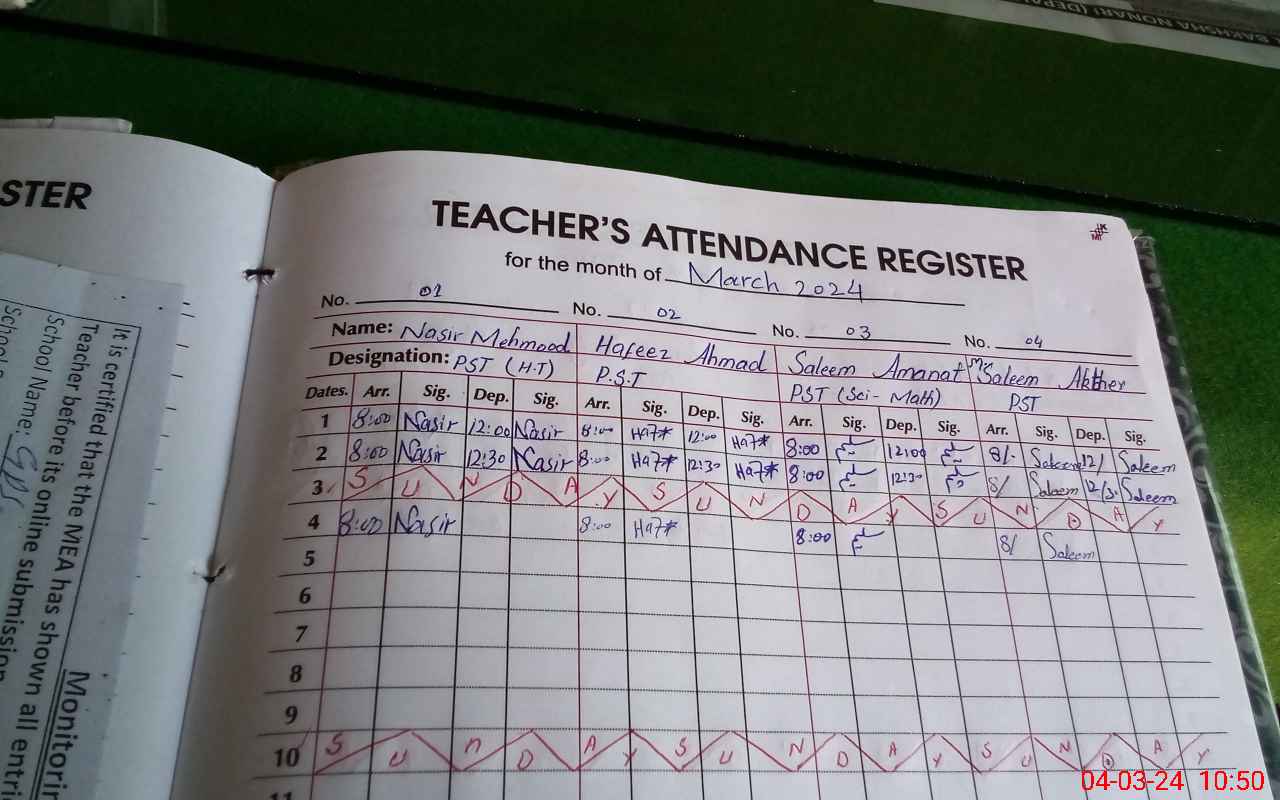 BAKHSHA NONARI (DEPA
STER
It is certified that the MEA has shown all entri
Teacher before its online submission
School Name: GPS
School
Monitorin
TEACHER'S ATTENDANCE REGISTER
for the month of March 2024
No. 01 No. 02 No. 03 No. 04
Name: Nasir Mehmood Hafeez Ahmad Saleem Amanat Mr Saleem Akhther
Designation: PST (H.T) P.S.T PST (Sci-Math) PST
Dates. Arr. Sig. Dep. Sig. Arr. Sig. Dep. Sig. Arr. Sig. Dep. Sig. Arr. Sig. Dep. Sig.
1 8:00 Nasir 12:00 Nasir 8:00 Ha7* 12:00 Ha7* 8:00 12:00 8/- Saleem 12/ Saleem
2 8:00 Nasir 12:30 Nasir 8:00 Ha7* 12:30 Ha7* 8:00 12:30 8/ Saleem 12/3. Saleem
3 S U N D A Y S U N D A Y S U N D A Y
4 8:00 Nasir 8:00 Ha7* 8:00 8/ Saleem
5
6
7
8
9
10 S U n D A Y S U N D A Y S U N D A Y
11
04-03-24 10:50